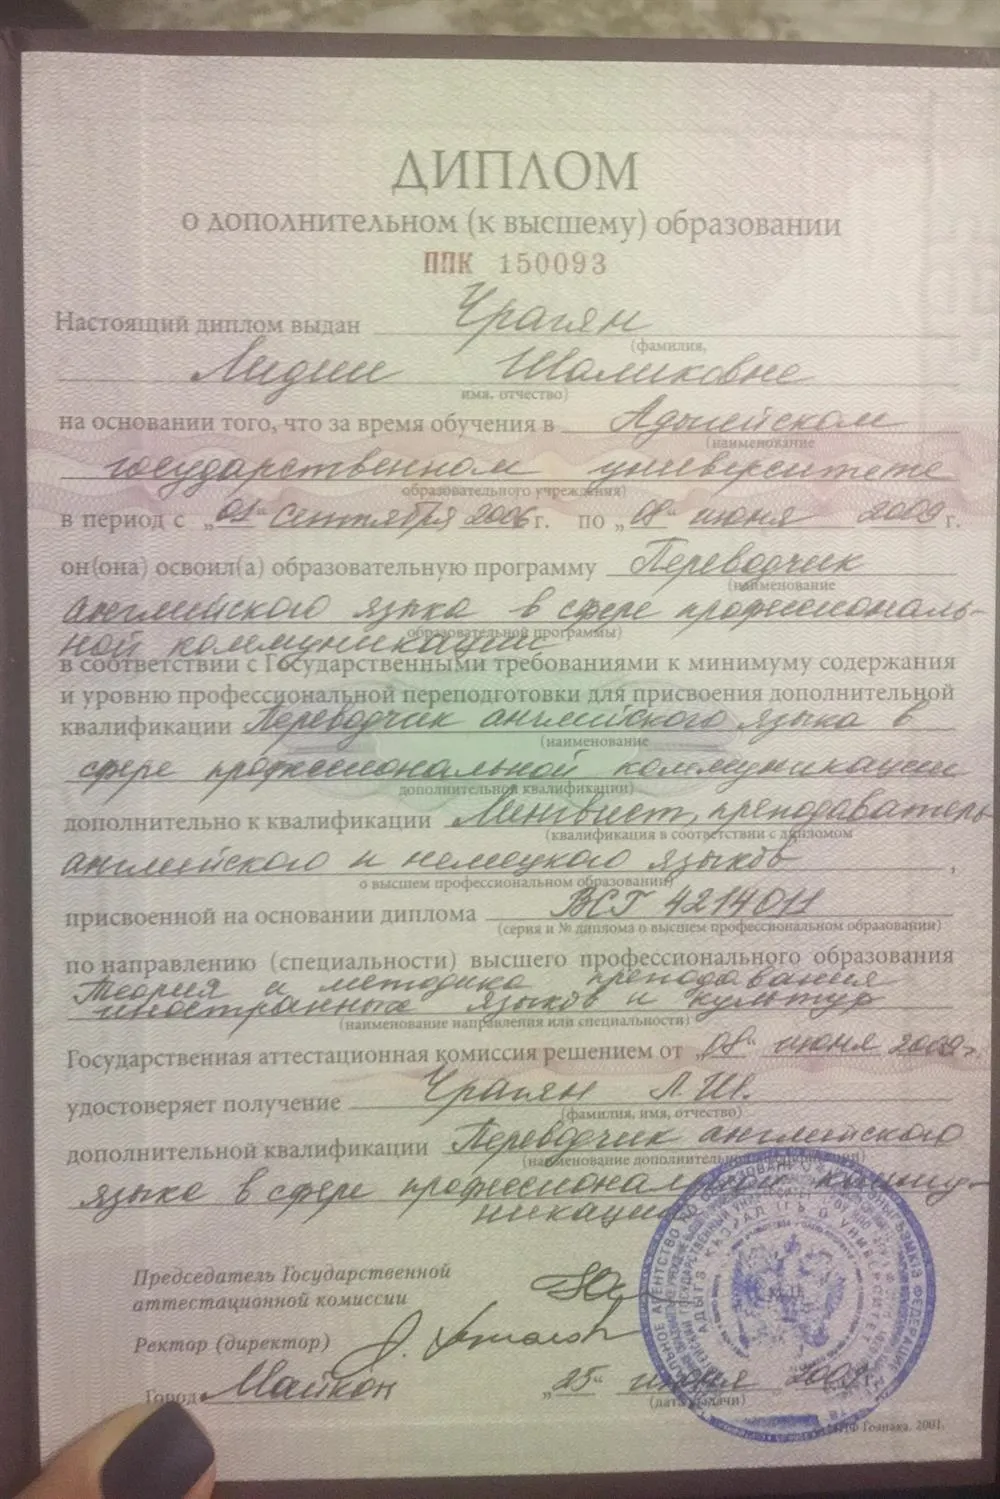 ДИПЛОМ
о дополнительном (к высшему) образовании
ППК 150093
Настоящий диплом выдан Чрагян
(фамилия,
Лидии Шаликовне
имя, отчество)
на основании того, что за время обучения в Адыгейском
(наименование
государственном университете
образовательного учреждения)
в период с „01“ сентября 2006 г. по „08“ июня 2009 г.
он(она) освоил(а) образовательную программу Переводчик
(наименование
английского языка в сфере профессиональ-
образовательной программы)
ной коммуникации
в соответствии с Государственными требованиями к минимуму содержания
и уровню профессиональной переподготовки для присвоения дополнительной
квалификации Переводчик английского языка в
(наименование
сфере профессиональной коммуникации
дополнительной квалификации)
дополнительно к квалификации Лингвист, преподаватель
(квалификация в соответствии с дипломом
английского и немецкого языков,
о высшем профессиональном образовании)
присвоенной на основании диплома ВСГ 4214011
(серия и № диплома о высшем профессиональном образовании)
по направлению (специальности) высшего профессионального образования
Теория и методика преподавания
иностранных языков и культур
(наименование направления или специальности)
Государственная аттестационная комиссия решением от „08“ июня 2009 г.
удостоверяет получение Чрагян Л.Ш.
(фамилия, имя, отчество)
дополнительной квалификации Переводчик английского
(наименование дополнительной квалификации)
языка в сфере профессиональной комму-
никации
Председатель Государственной
аттестационной комиссии
Ректор (директор)
Город Майкоп „25“ июня 2009 г.
(дата выдачи)
Гознака. 2001.